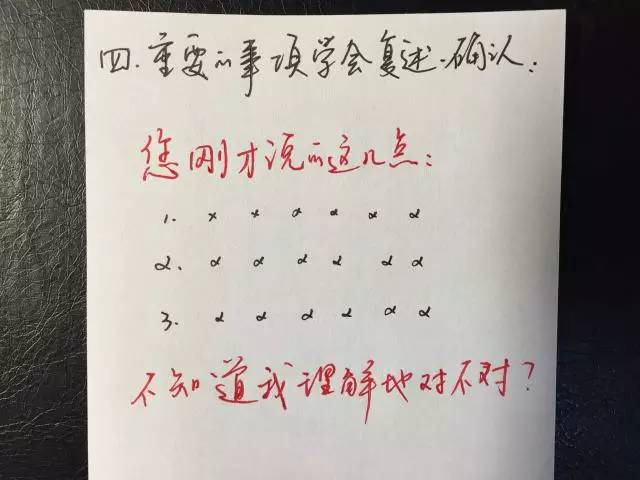 四.重要的事项学会复述.确认:
您刚才说的这几点:
1. × × × × × ×
2. × × × × × ×
3. × × × × × ×
不知道我理解地对不对?